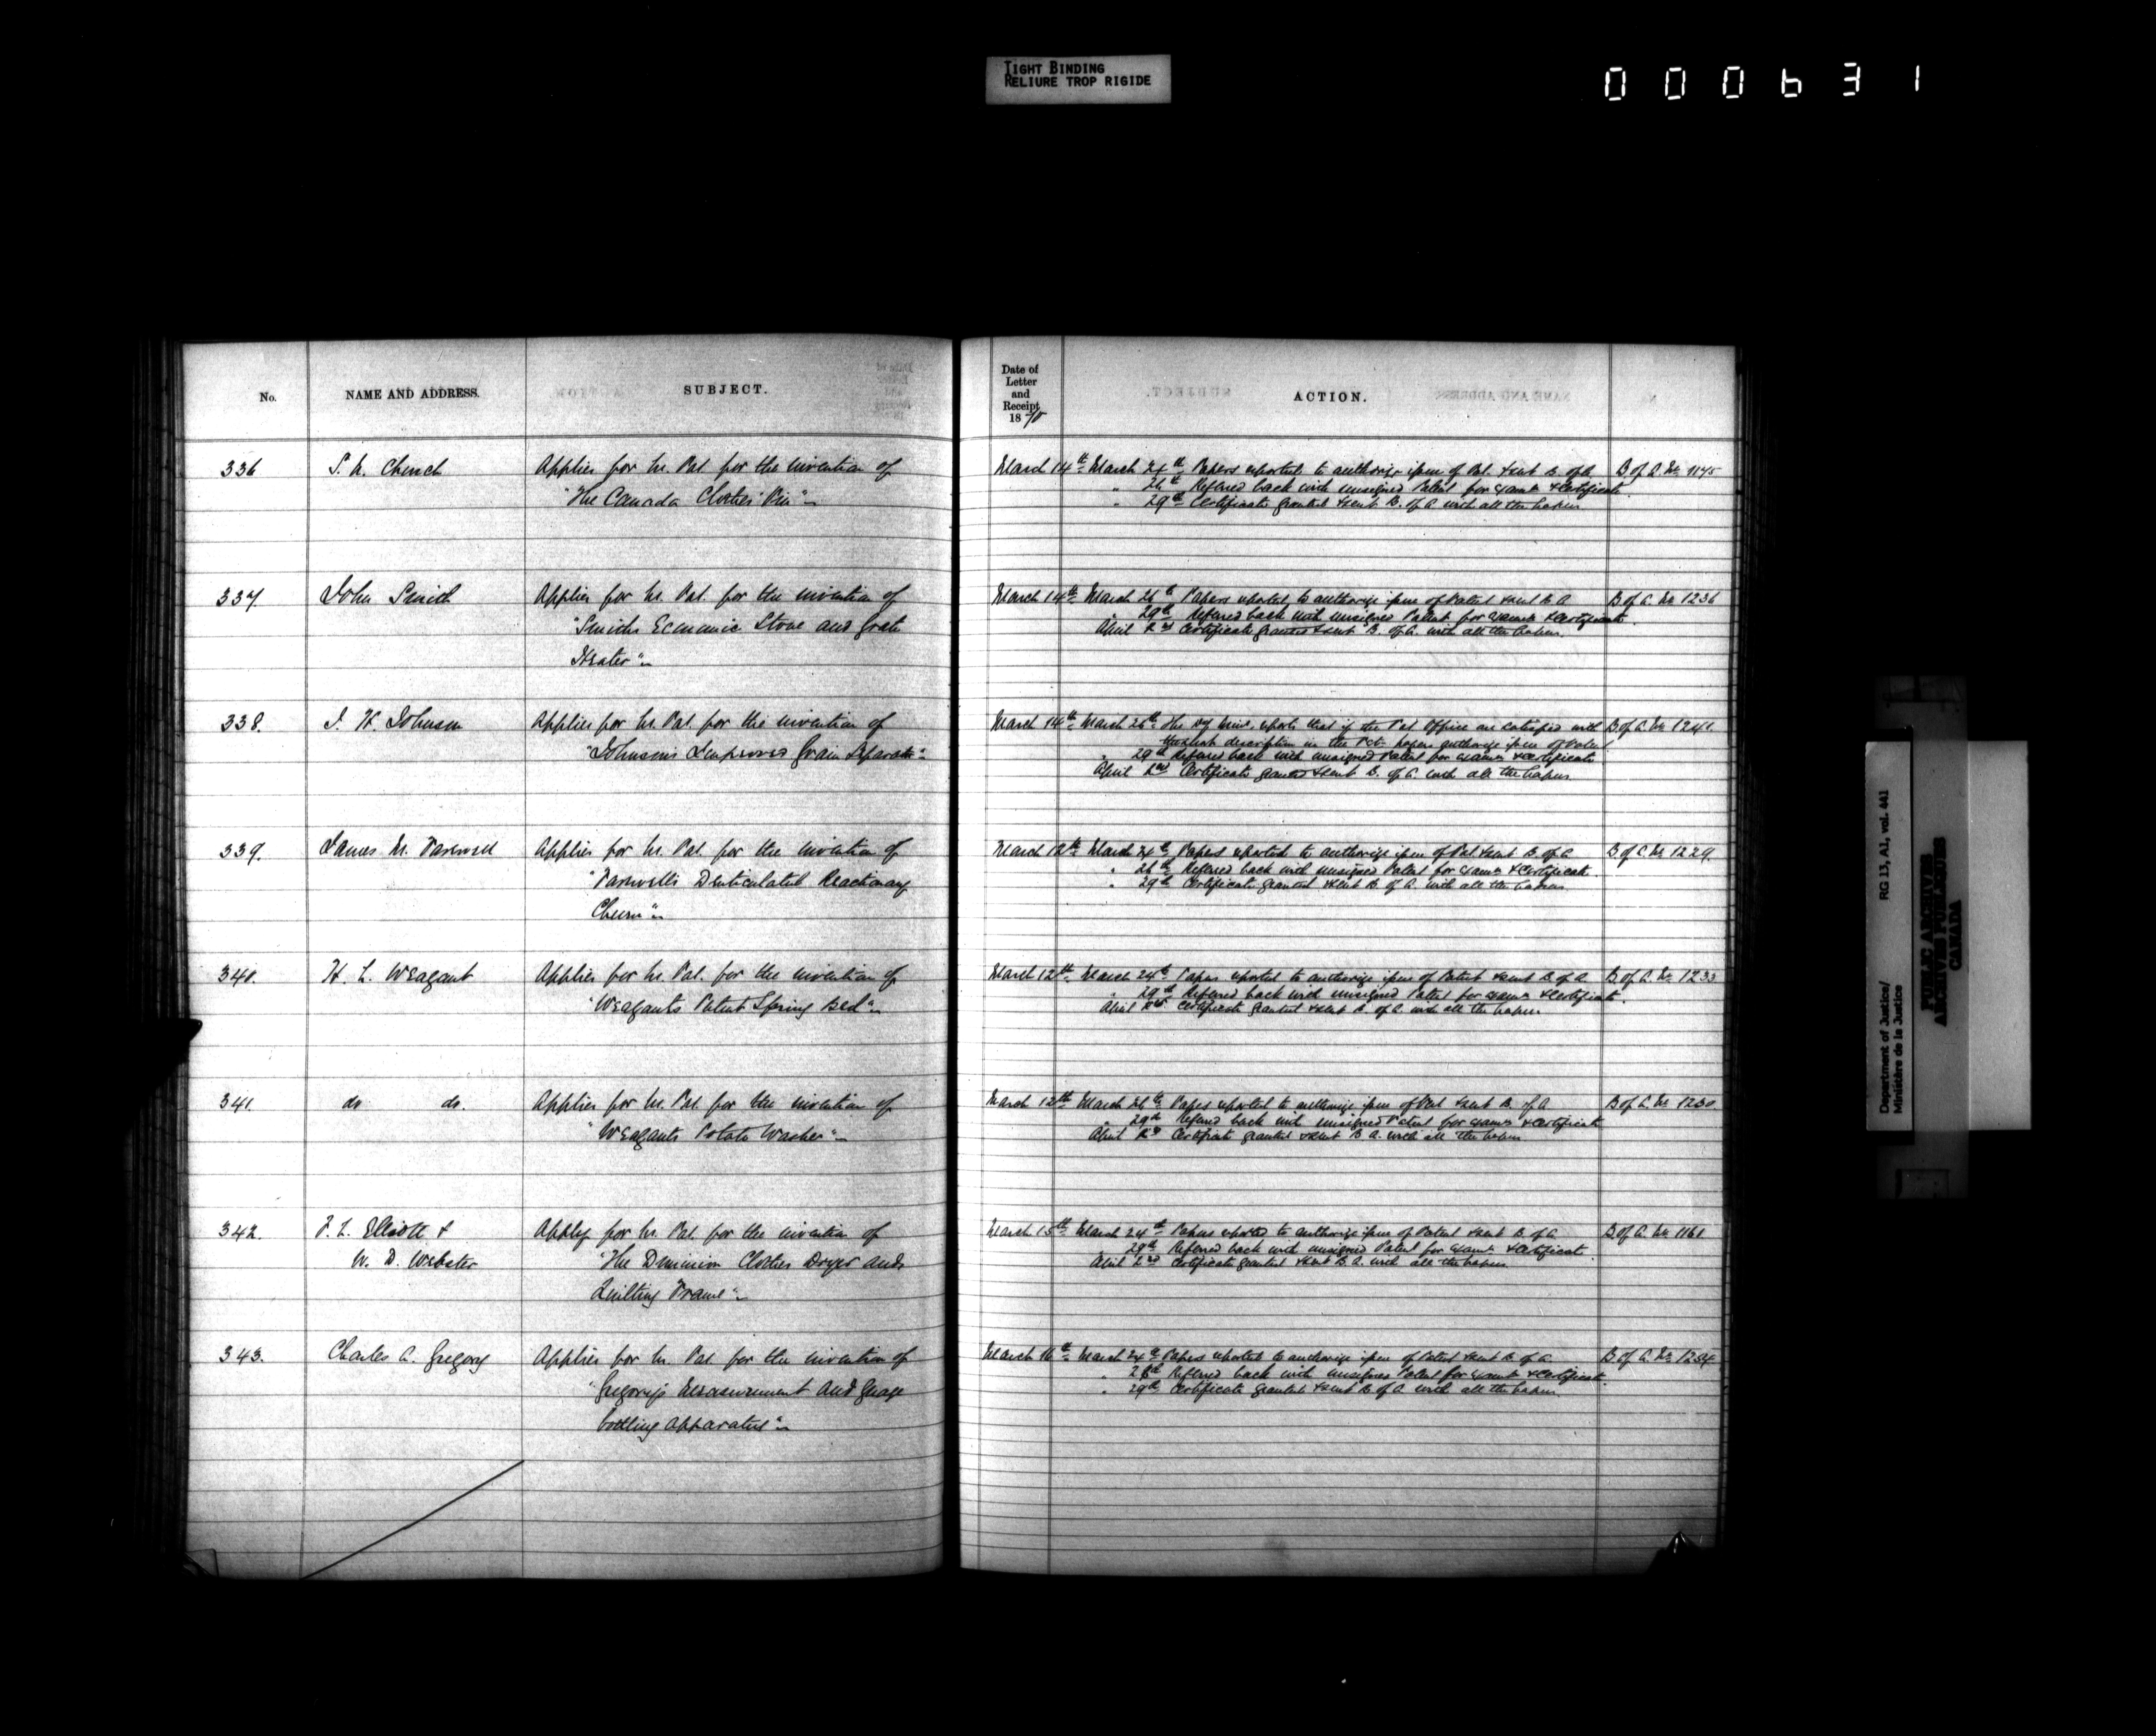 TIGHT BINDING
RELIURE TROP RIGIDE
000631
No.
NAME AND ADDRESS.
SUBJECT.
Date of
Letter
and
Receipt
1870
ACTION.
336 S. A. Church Applies for Lr. Pat. for the invention of
"The Canada Clothes Pin"
March 14th March 24th Papers reported to authorize issue of Pat. & sent B. of A. B of A. No. 1145
" 26th Refered back with unsigned Patent for Exam. & Certificate
" 29th Certificate granted & sent B. of A. with all the papers
337. John Smith Applies for Lr. Pat. for the invention of
"Smiths Economic Stove and Grate
Heater"
March 14th March 26th Papers reported to authorize issue of Patent & sent B A B of A. No. 1236
" 29th Refered back with unsigned Patent for Exam. & Certificate
April 2nd Certificate granted & sent B. of A. with all the papers
338. J. H. Johnson Applies for Lr. Pat. for the invention of
"Johnsons Improved Grain Separator"
March 14th March 26th The Minr. reports that if the Pat. Office are satisfied with B of A. No. 1241.
description in the papers authorize issue of Patent
" 29th Refered back with unsigned Patent for Exam. & Certificate
April 2nd Certificate granted & sent B. of A. with all the papers
339. James M. Farewell Applies for Lr. Pat. for the invention of
"Farewells Denticulated Reactionary
Churn"
March 12th March 24th Papers reported to authorize issue of Pat. & sent B. of A B of A No. 1229.
" 26th Refered back with unsigned Patent for Exam. & Certificate
" 29th Certificate granted & sent B of A. with all the papers
340. H. L. Weagant Applies for Lr. Pat. for the invention of
"Weagants Patent Spring Bed"
March 12th March 24th Papers reported to authorize issue of Patent & sent B. of A B of A. No. 1233
" 29th Refered back with unsigned Patent for Exam. & Certificate
April 2nd Certificate granted & sent B. of A. with all the papers
341. do do. Applies for Lr. Pat. for the invention of
"Weagants Potato Washer"
March 12th March 26th Papers reported to authorize issue of Pat & sent B. of A B of A. No. 1230
" 29th Refered back with unsigned Patent for Exam. & Certificate
April 2nd Certificate granted & sent B A. with all the papers
342. F. L. Elliott & Apply for Lr. Pat. for the invention of
W. D. Webster "The Dominion Clothes Dryer and
Quilting Frame"
March 15th March 24th Papers reported to authorize issue of Patent & sent B. of A B of A. No. 1161
" 29th Refered back with unsigned Patent for Exam. & Certificate
April 2nd Certificate granted & sent B. A. with all the papers
343. Charles A. Gregory Applies for Lr. Pat. for the invention of
"Gregory's Measurement and Guage
bottling apparatus"
March 16th March 24th Papers reported to authorize issue of Patent & sent B. of A. B of A. No. 1254.
" 26th Refered back with unsigned Patent for Exam. & Certificate
" 29th Certificate granted & sent B. of A. with all the papers
Department of Justice/ RG 13, A1, vol. 441
Ministère de la Justice
PUBLIC ARCHIVES
ARCHIVES PUBLIQUES
CANADA